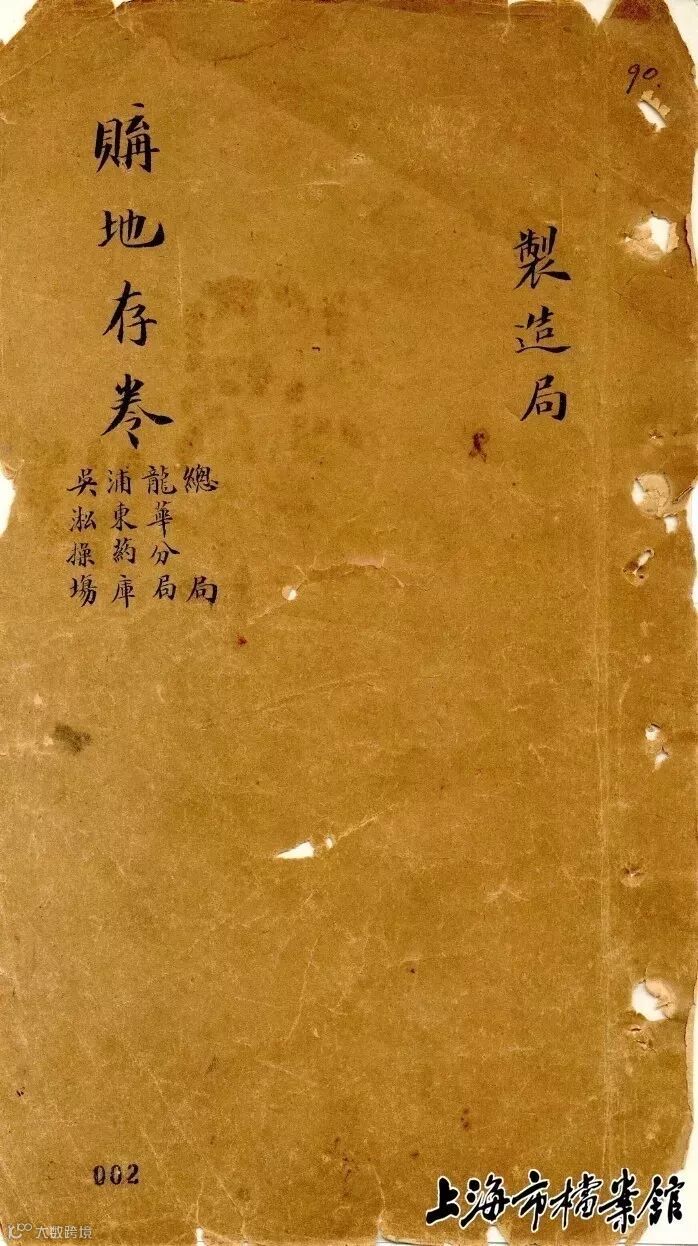 90.
製造局
購地存卷
總局
龍華分局
浦東葯庫
吳淞操塲
002
上海市檔案館
大数跨境